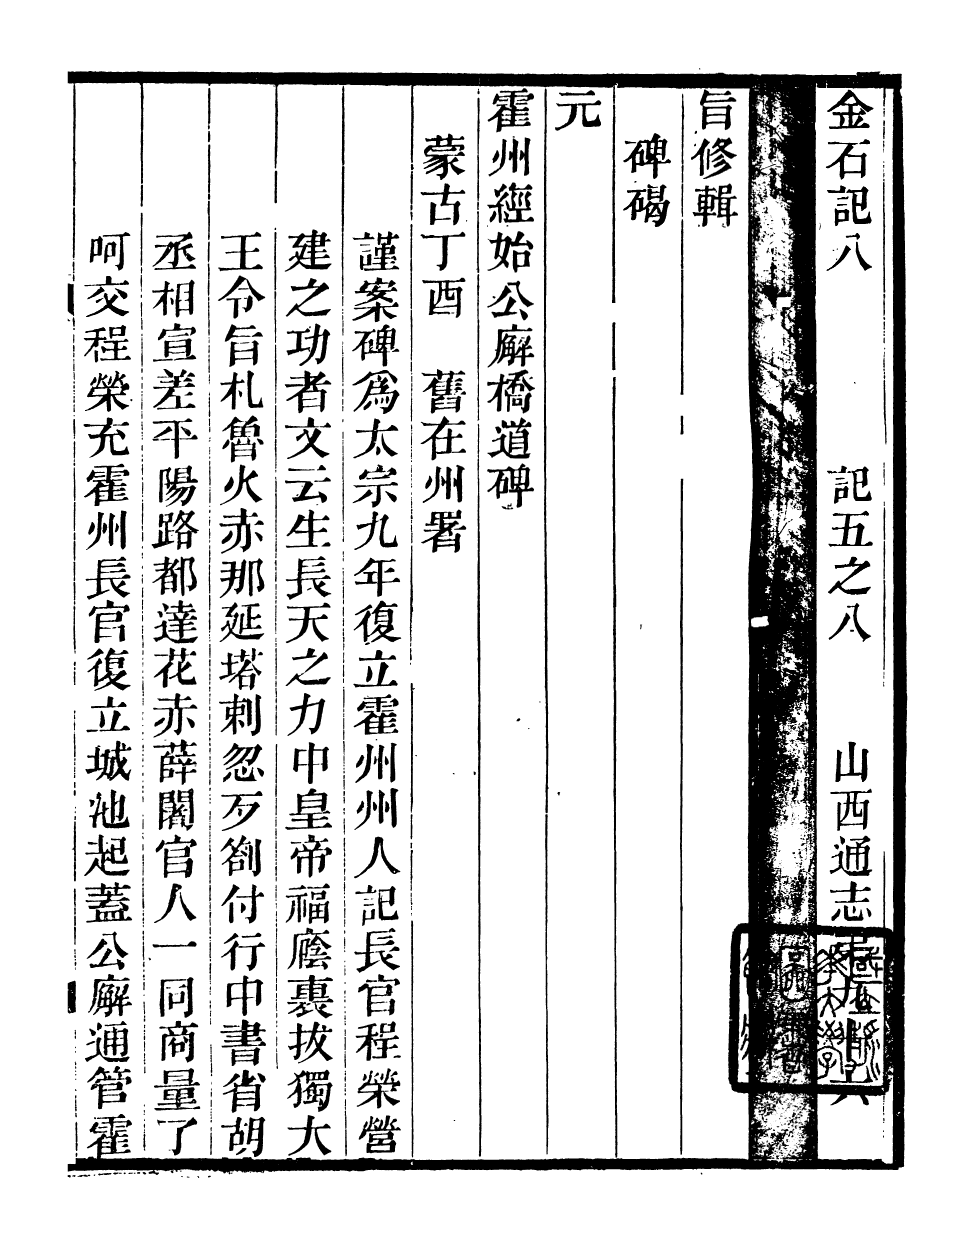 金石記八　記五之八　山西通志
旨修輯
碑碣
元
霍州經始公廨橋道碑
蒙古丁酉　舊在州署
謹案碑爲太宗九年復立霍州州人記長官程榮營
建之功者文云生長天之力中皇帝福廕裏拔獨大
王令旨札魯火赤那延塔剌忽歹劄付行中書省胡
丞相宣差平陽路都達花赤薛闍官人一同商量了
呵交程榮充霍州長官復立城池起蓋公廨通管霍